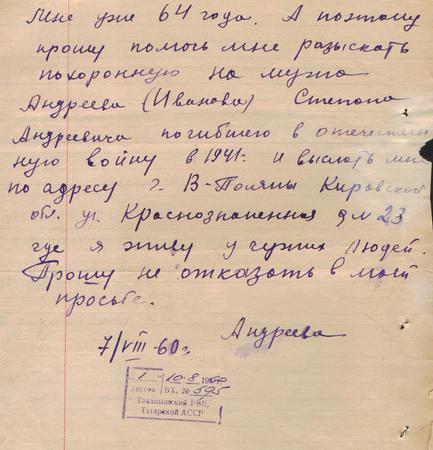 Мне уже 64 года. А поэтому
прошу помочь мне разыскать
похоронную на мужа
Андреева (Иванова) Степана
Андреевича погибшего в отечествен
ную войну в 1941г. и выслать мне
по адресу г. В-Поляны Кировской
обл. ул. Краснознаменная д № 23
где я живу у чужих людей.
Прошу не отказать в моей
просьбе.
Андреева
7/VIII-60г.
1 10-8 1960
листов ВХ. № 595
РВК,
Татарской АССР